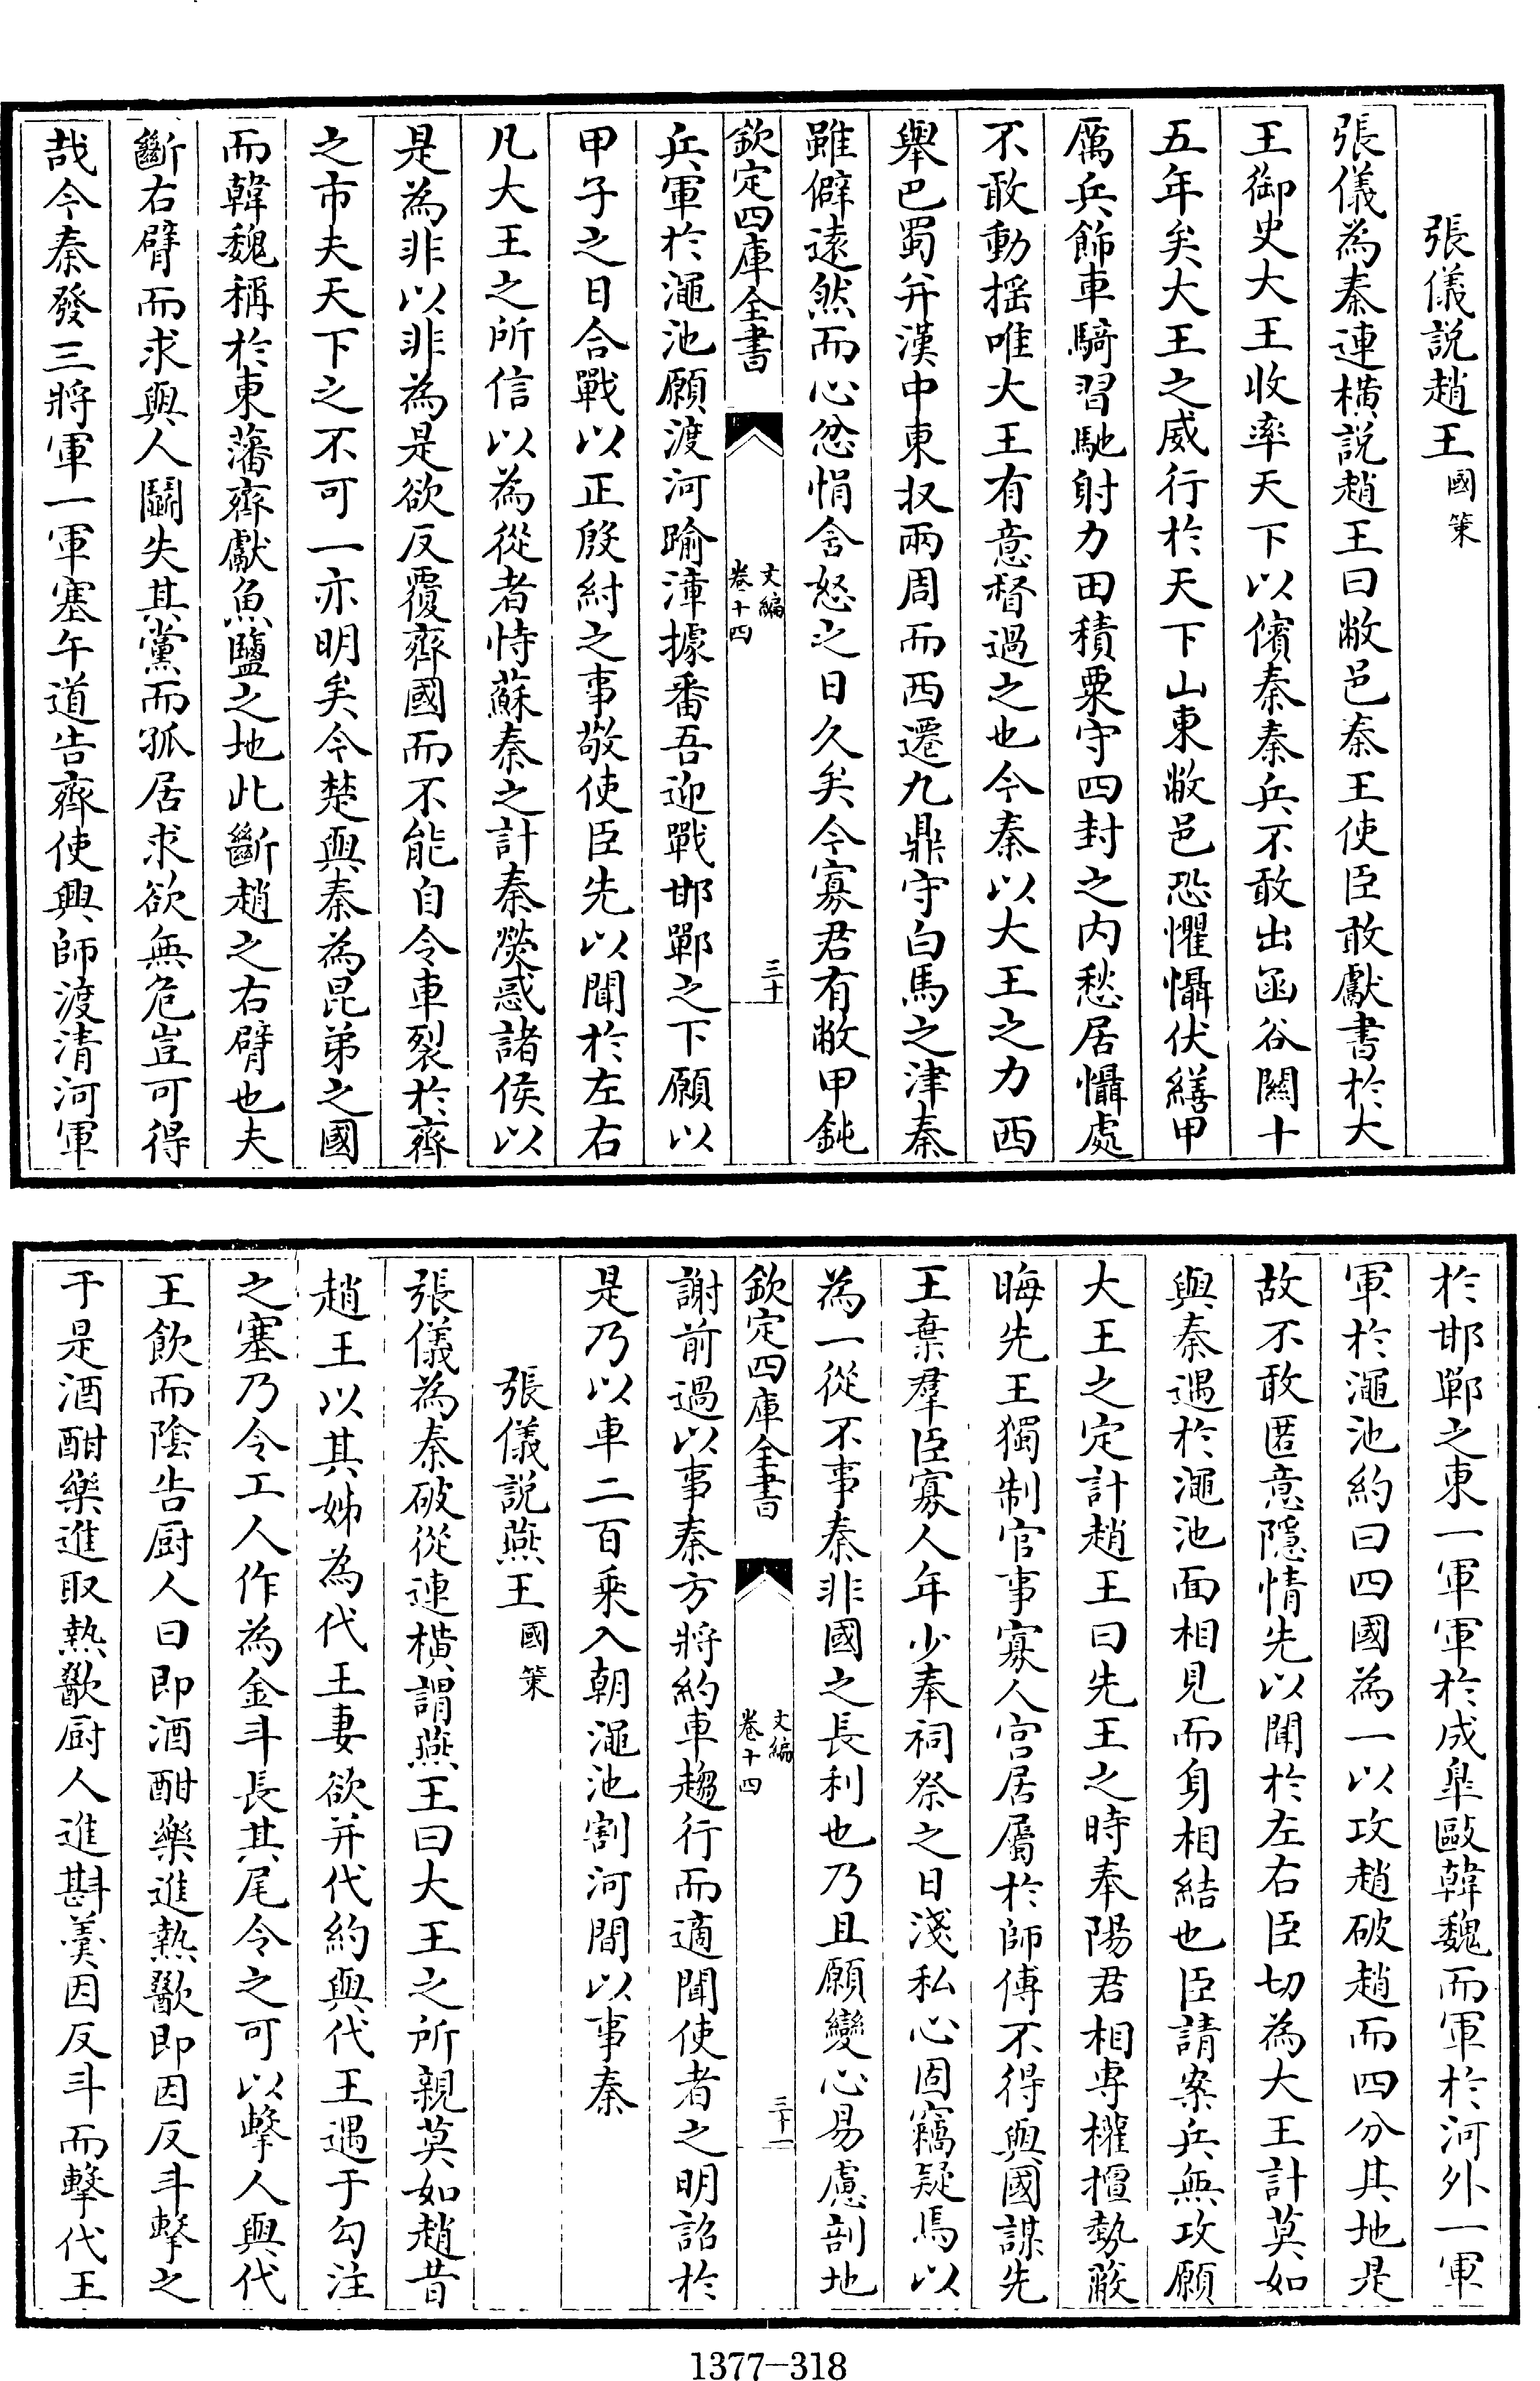 張儀說趙王國策
張儀為秦連橫說趙王曰敝邑秦王使臣敢獻書於大
王御史大王收率天下以儐秦秦兵不敢出函谷關十
五年矣大王之威行於天下山東敝邑恐懼懾伏繕甲
厲兵飾車騎習馳射力田積粟守四封之內愁居懾處
不敢動揺唯大王有意督過之也今秦以大王之力西
舉巴蜀并漢中東収兩周而西遷九鼎守白馬之津秦
雖僻遠然而心忿悁含怒之日久矣今寡君有敝甲鈍
欽定四庫全書
文編
卷十四
三十
兵軍於澠池願渡河踰漳據番吾迎戰邯鄲之下願以
甲子之日合戰以正殷紂之事敬使臣先以聞於左右
凡大王之所信以為從者恃蘇秦之計秦熒惑諸侯以
是為非以非為是欲反覆齊國而不能自令車裂於齊
之市夫天下之不可一亦明矣今楚與秦為昆弟之國
而韓魏稱於東藩齊獻魚鹽之地此斷趙之右臂也夫
斷右臂而求與人鬭失其黨而孤居求欲無危豈可得
哉今秦發三將軍一軍塞午道告齊使興師渡清河軍
於邯鄲之東一軍軍於成臯毆韓魏而軍於河外一軍
軍於澠池約曰四國為一以攻趙破趙而四分其地是
故不敢匿意隱情先以聞於左右臣切為大王計莫如
與秦遇於澠池面相見而身相結也臣請案兵無攻願
大王之定計趙王曰先王之時奉陽君相専權擅勢蔽
晦先王獨制官事寡人宫居屬於師傅不得與國謀先
王棄羣臣寡人年少奉祠祭之日淺私心固竊疑焉以
為一從不事秦非國之長利也乃且願變心易慮剖地
欽定四庫全書
文編
卷十四
三十一
謝前過以事秦方將約車趨行而適聞使者之明詔於
是乃以車二百乗入朝澠池割河間以事秦
張儀說燕王國策
張儀為秦破從連橫謂燕王曰大王之所親莫如趙昔
趙王以其姊為代王妻欲并代約與代王遇于勾注
之塞乃令工人作為金斗長其尾令之可以擊人與代
王飲而陰告厨人曰即酒酣樂進熱歠即因反斗擊之
于是酒酣樂進取熱歠厨人進斟羹因反斗而擊代王
1377-318